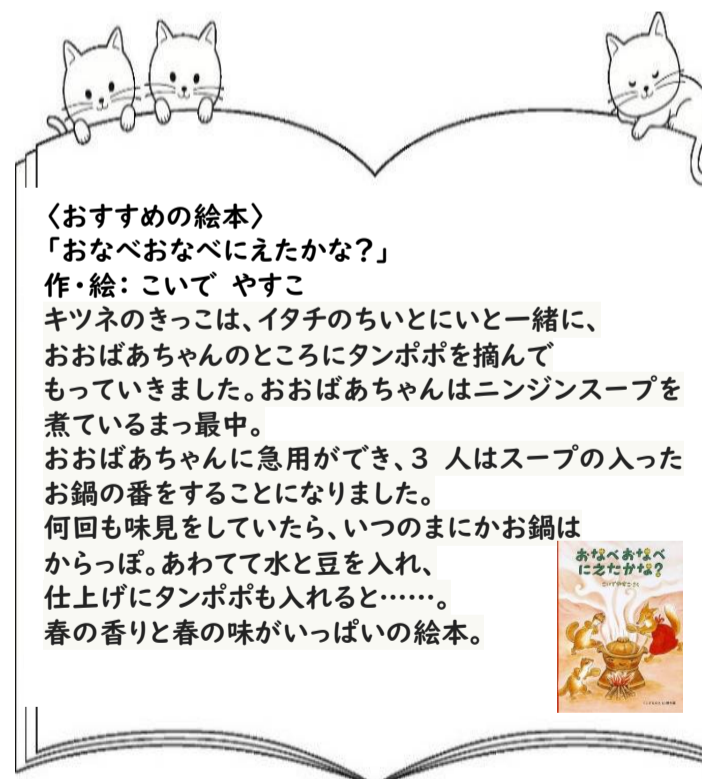 〈おすすめの絵本〉
「おなべおなべにえたかな？」
作・絵： こいで やすこ
キツネのきっこは、イタチのちいとにいと一緒に、
おおばあちゃんのところにタンポポを摘んで
もっていきました。おおばあちゃんはニンジンスープを
煮ているまっ最中。
おおばあちゃんに急用ができ、３ 人はスープの入った
お鍋の番をすることになりました。
何回も味見をしていたら、いつのまにかお鍋は
からっぽ。あわてて水と豆を入れ、
仕上げにタンポポも入れると……。
春の香りと春の味がいっぱいの絵本。
おなべおなべ
にえたかな？